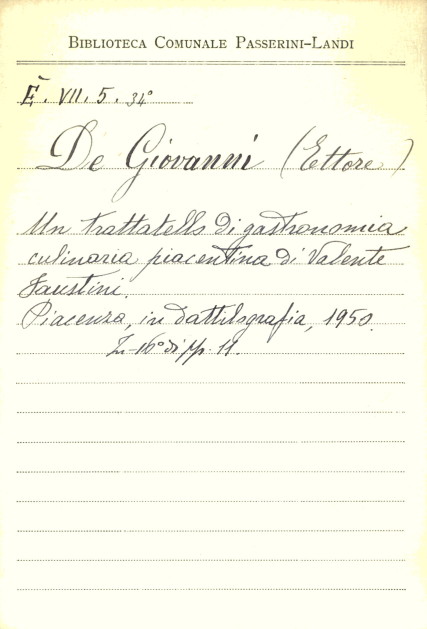 BIBLIOTECA COMUNALE PASSERINI-LANDI
Ē. VII. 5. 34°
De Giovanni (Ettore)
Un trattatello di gastronomia
culinaria piacentina di Valente
Faustini.
Piacenza, in dattilografia, 1950.
In-16° di pp. 11.